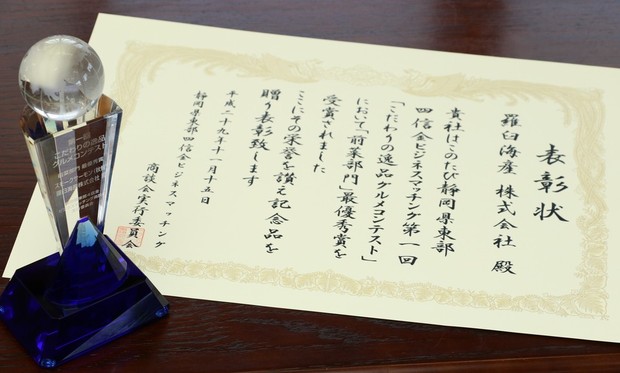 表彰状
羅臼海産 株式会社 殿
貴社はこのたび静岡県東部
四信金ビジネスマッチング第一回
「こだわりの逸品グルメコンテスト」
において「前菜部門」最優秀賞を
受賞されました
ここにその栄誉を讃え記念品を
贈り表彰致します
平成二十九年十一月十五日
静岡県東部四信金ビジネスマッチング
商談会実行委員会
第一回
こだわりの逸品
グルメコンテスト